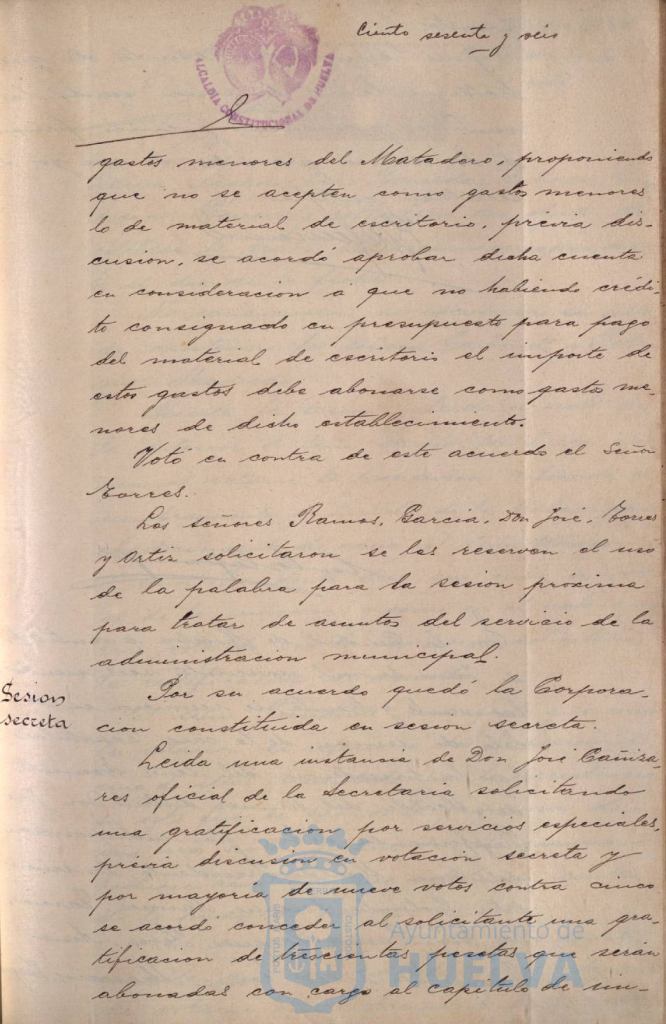 Ciento sesenta y seis
ALCALDIA CONSTITUCIONAL DE HUELVA
gastos menores del Matadero, proponiendo
que no se acepten como gastos menores
lo de material de escritorio, prévia dis-
cusion, se acordó aprobar dicha cuenta
en consideracion á que no habiendo crédi-
to consignado en presupuesto para pago
del material de escritorio el importe de
estos gastos debe abonarse como gastos me-
nores de dicho establecimiento.
Votó en contra de este acuerdo el Señor
Torres.
Los señores Ramos, Garcia, Don José, Torres
y Ortiz solicitaron se les reserven el uso
de la palabra para la sesion próxima
para tratar de asuntos del servicio de la
administracion municipal.
Sesion
secreta
Por su acuerdo quedó la Corpora-
cion constituida en sesion secreta.
Leida una instancia de Don José Cañiza-
res oficial de la Secretaria solicitando
una gratificacion por servicios especiales,
prévia discusion en votacion secreta y
por mayoría de nueve votos contra cinco
se acordó conceder al solicitante una gra-
tificacion de trescientas pesetas que serán
abonadas con cargo al capitulo de im-
Ayuntamiento de
HUELVA